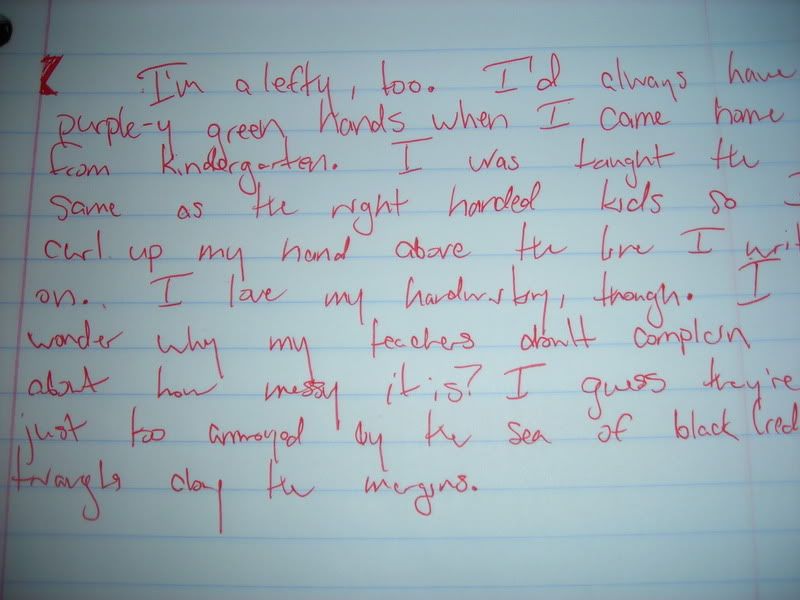 I'm a lefty, too. I'd always have
purple-y green hands when I came home
from kindergarten. I was taught the
same as the right handed kids so I
curl up my hand above the line I writ
on. I love my handwriting, though. I
wonder why my teachers don't complain
about how messy it is? I guess they're
just too annoyed by the sea of black (red
triangles along the margins.